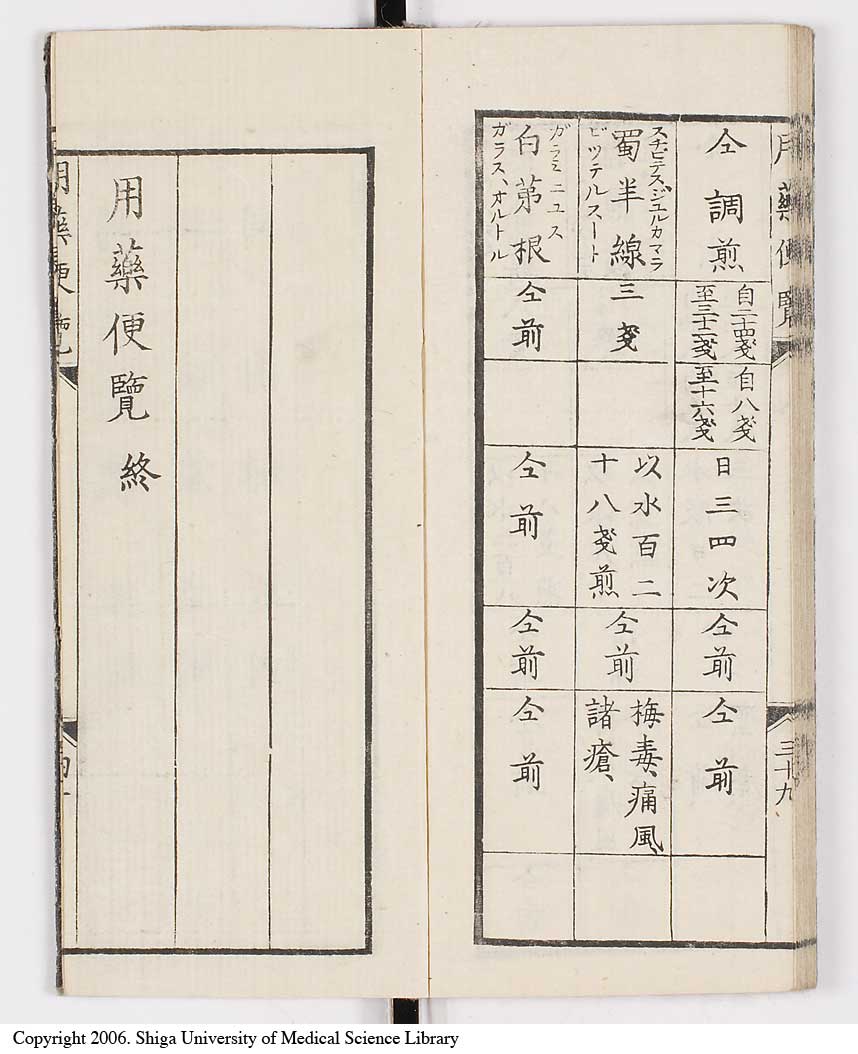 用藥便覽
三十九
仝調煎
自二十四戔
至三十二戔
自八戔
至十六戔
日三四次
仝前
仝前
スチピテス、ジュルカマラ
蜀半線
ビッテルスート
三戔
以水百二
十八戔煎
仝前
梅毒、痛風、
諸瘡、
ガラミニユス
白茅根
ガラス、オルトル
仝前
仝前
仝前
仝前
用藥便覽 終
用藥便覽
Copyright 2006. Shiga University of Medical Science Library